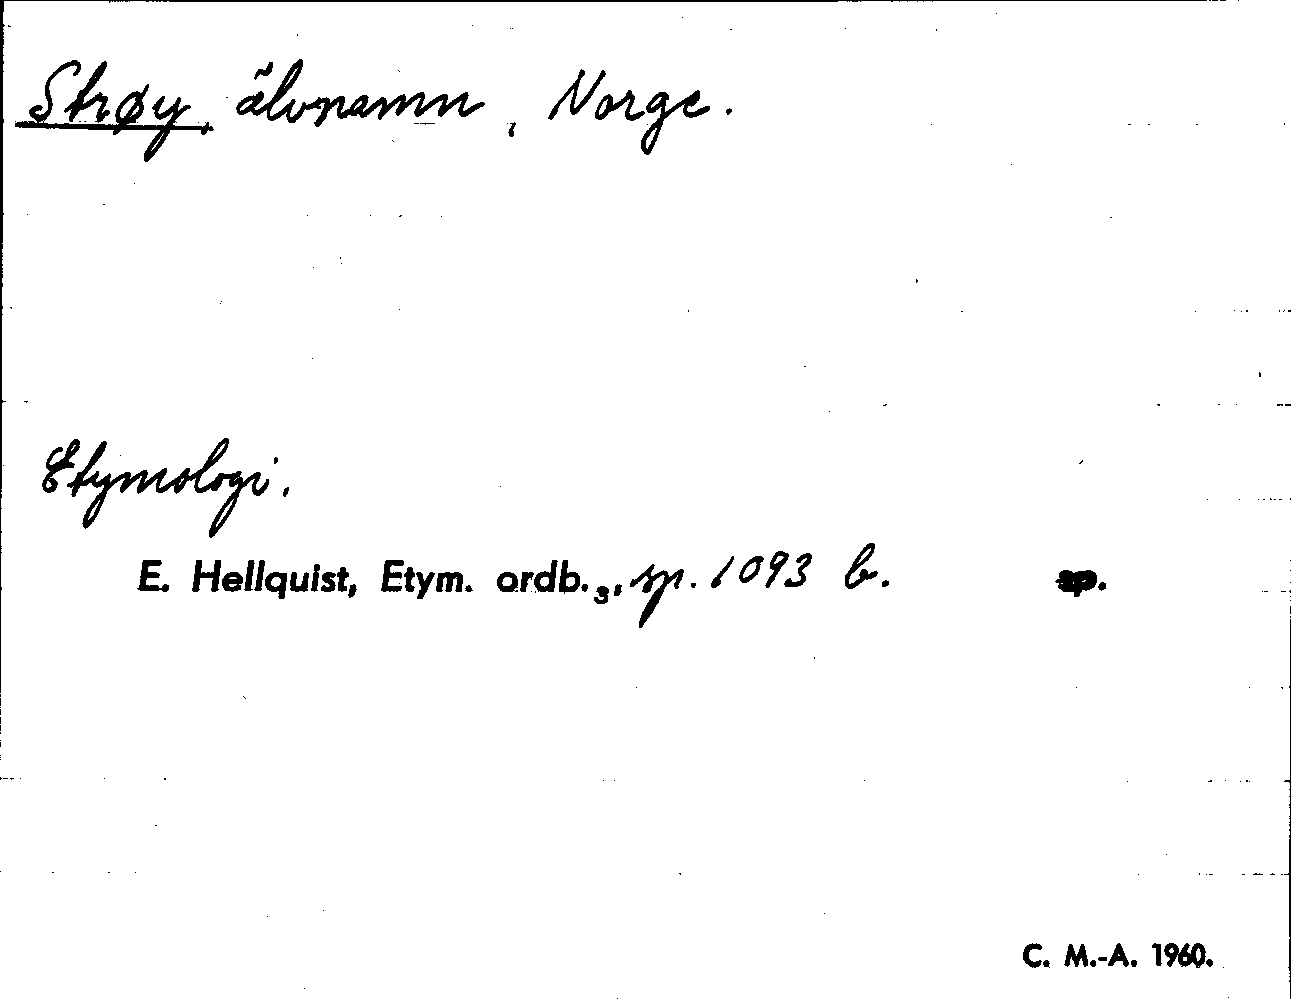 Strøy, älvnamn, Norge.
Etymologi.
E. Hellquist, Etym. ordb.₃, sp. 1093 b. sp.
C. M.-A. 1960.